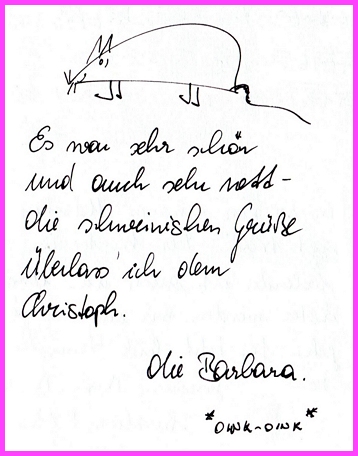 Es war sehr schön
und auch sehr nett -
die schweinischen Grüße
Überlass' ich dem
Christoph.
die Barbara.
*OINK-OINK*